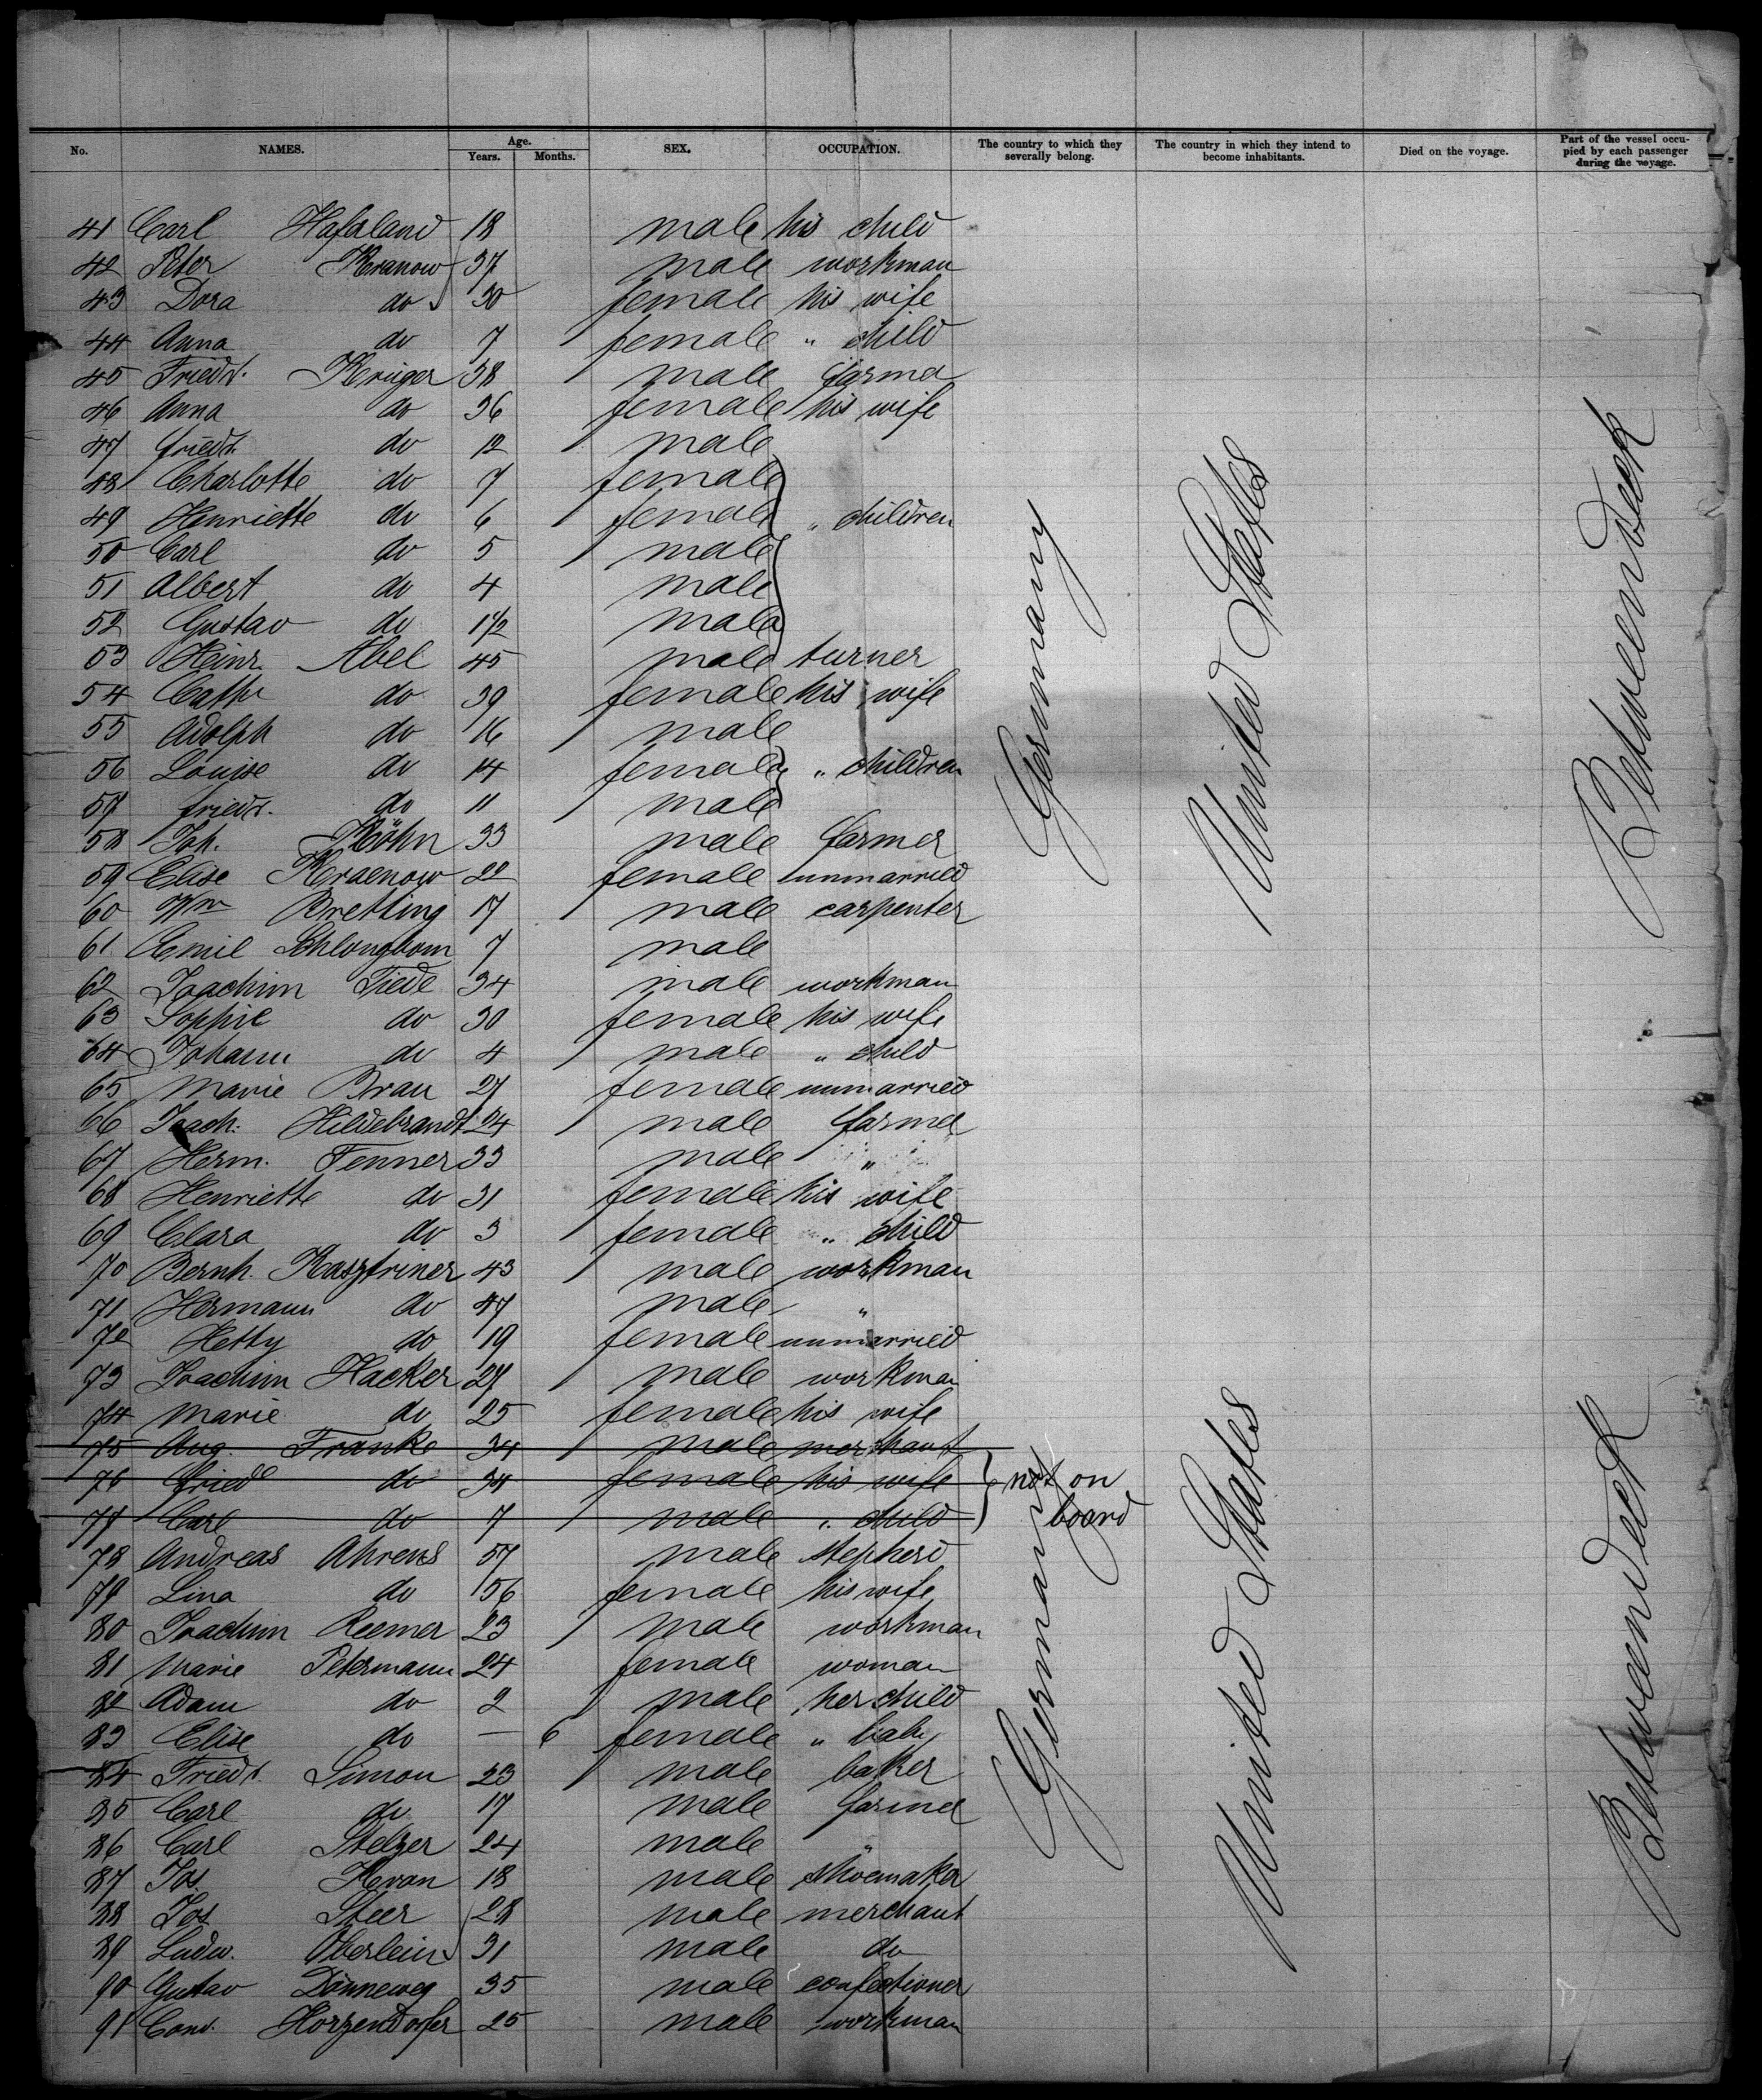 No. NAMES. Age. Years. Months. SEX. OCCUPATION. The country to which they severally belong. The country in which they intend to become inhabitants. Died on the voyage. Part of the vessel occupied by each passenger during the voyage.
41 Carl Hafaland 18 male his child
42 Peter Kranow 37 male workman
43 Dora do 30 female his wife
44 Anna do 7 female " child
45 Friedr. Krüger 38 male farmer
46 Anna do 36 female his wife
47 Friedr. do 12 male
48 Charlotte do 7 female
49 Henriette do 6 female " children
50 Carl do 5 male
51 Albert do 4 male
52 Gustav do 1 1/2 male
53 Heinr. Abel 45 male turner
54 Cathr do 39 female his wife
55 Adolph do 16 male
56 Louise do 14 female " children
57 Friedr. do 11 male
58 Joh. Köhn 33 male farmer
59 Elise Kraenow 22 female unmarried
60 Wm Bretting 17 male carpenter
61 Emil Schlongbom 7 male
62 Joachim Tiede 34 male workman
63 Sophie do 30 female his wife
64 Johann do 4 male " child
65 Marie Brau 27 female unmarried
66 Joach: Hildebrandt 24 male farmer
67 Herm. Fenner 33 male "
68 Henriette do 31 female his wife
69 Clara do 3 female " child
70 Bernh. Kaszfriner 43 male workman
71 Hermann do 47 male "
72 Hetty do 19 female unmarried
73 Joachim Hacker 27 male workman
74 Marie do 25 female his wife
75 Aug. Franke 34 male merchant
76 Fried do 34 female his wife not on
77 Carl do 7 male " child board
78 Andreas Ahrens 57 male shepherd
79 Lina do 56 female his wife
80 Joachim Reemer 23 male workman
81 Marie Petermann 24 female woman
82 Adam do 2 male her child
83 Elise do — 6 female " baby
84 Friedr. Simon 23 male baker
85 Carl do 17 male farmer
86 Carl Stelzer 24 male "
87 Jos Kvan 18 male shoemaker
88 Jos Steer 28 male merchant
89 Ludw. Oberlein 31 male do
90 Gustav Dönneweg 35 male confectioner
91 Conr. Horzendorfer 25 male workman
Germany
United States
Between deck
Germany
United States
Between deck